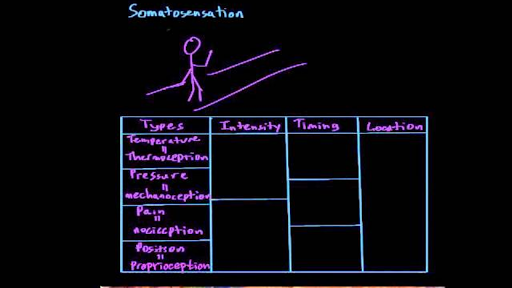 Somatosensation
Types Intensity Timing Location
Temperature
=
Thermoception
Pressure
=
mechanoception
Pain
=
nociception
Position
=
Proprioception